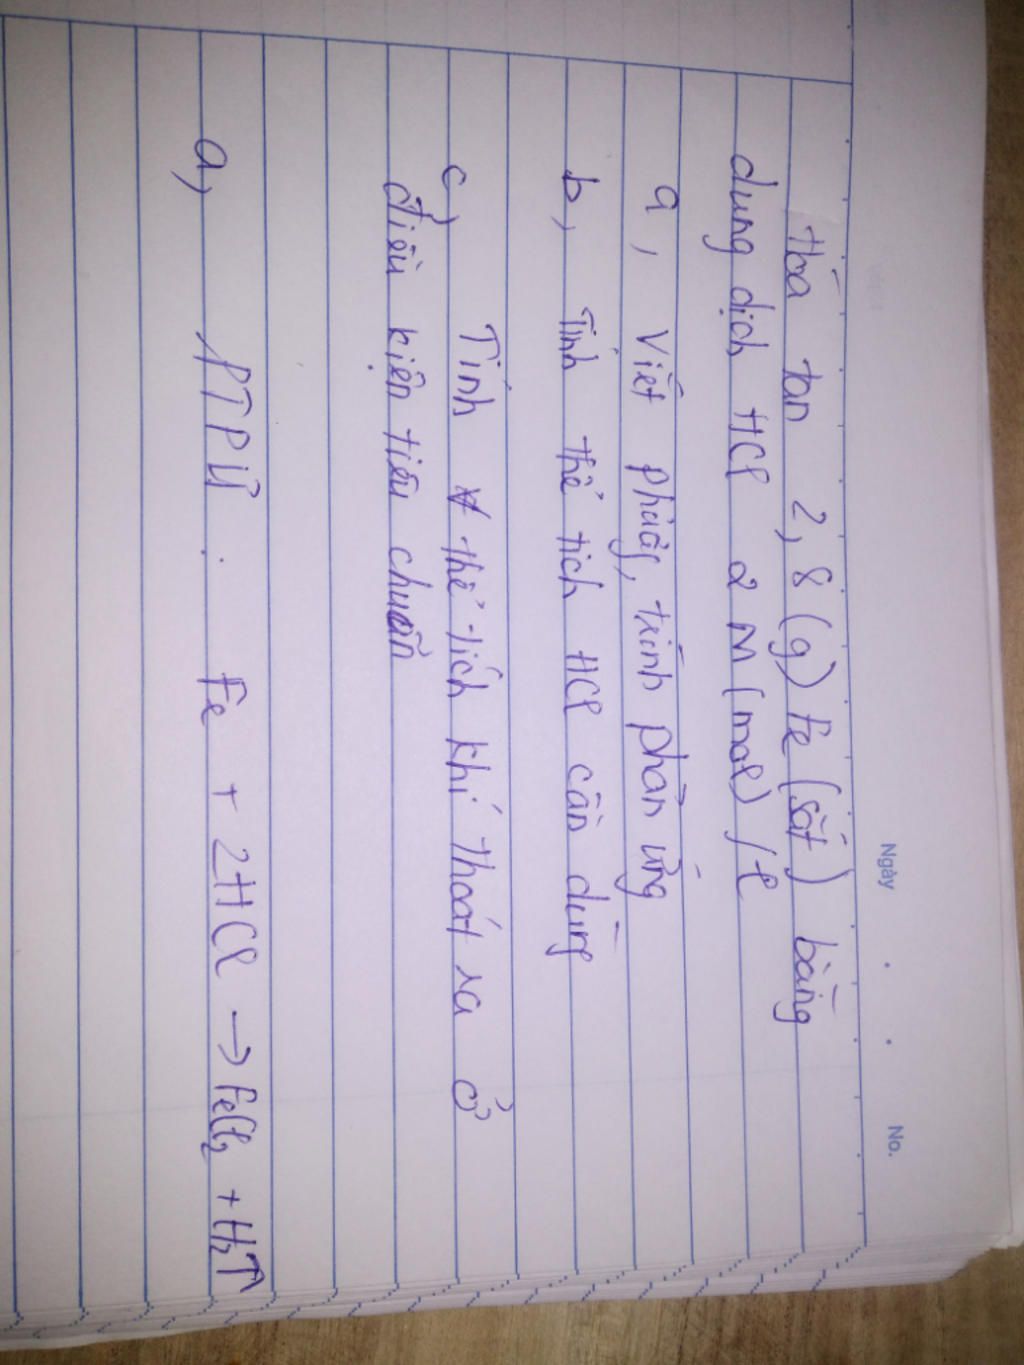 Ngày . . No.
Hòa tan 2,8 (g) Fe (sắt) bằng
dung dịch HCl 2 M (mol) / l
a, Viết phương trình phản ứng
b, Tính thể tích HCl cần dùng
c, Tính thể tích khí thoát ra ở
điều kiện tiêu chuẩn
a, PTPƯ . Fe + 2HCl → FeCl2 + H2↑